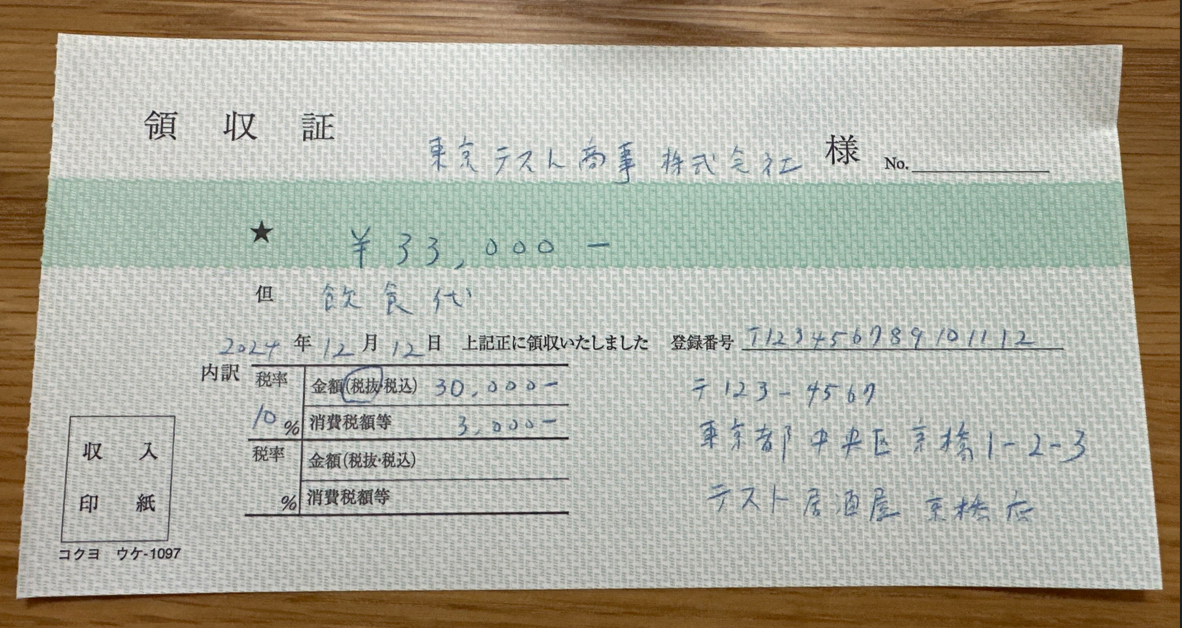 領収証 東京テスト商事 株式会社 様 No.
★ ¥33,000-
但 飲食代
2024年12月12日 上記正に領収いたしました 登録番号 T123456789101112
内訳 税率 10% 金額(税抜・税込) 30,000-
消費税額等 3,000-
税率 % 金額(税抜・税込)
消費税額等
〒123-4567
東京都中央区京橋1-2-3
テスト居酒屋 京橋店
収入
印紙
コクヨ ウケ-1097